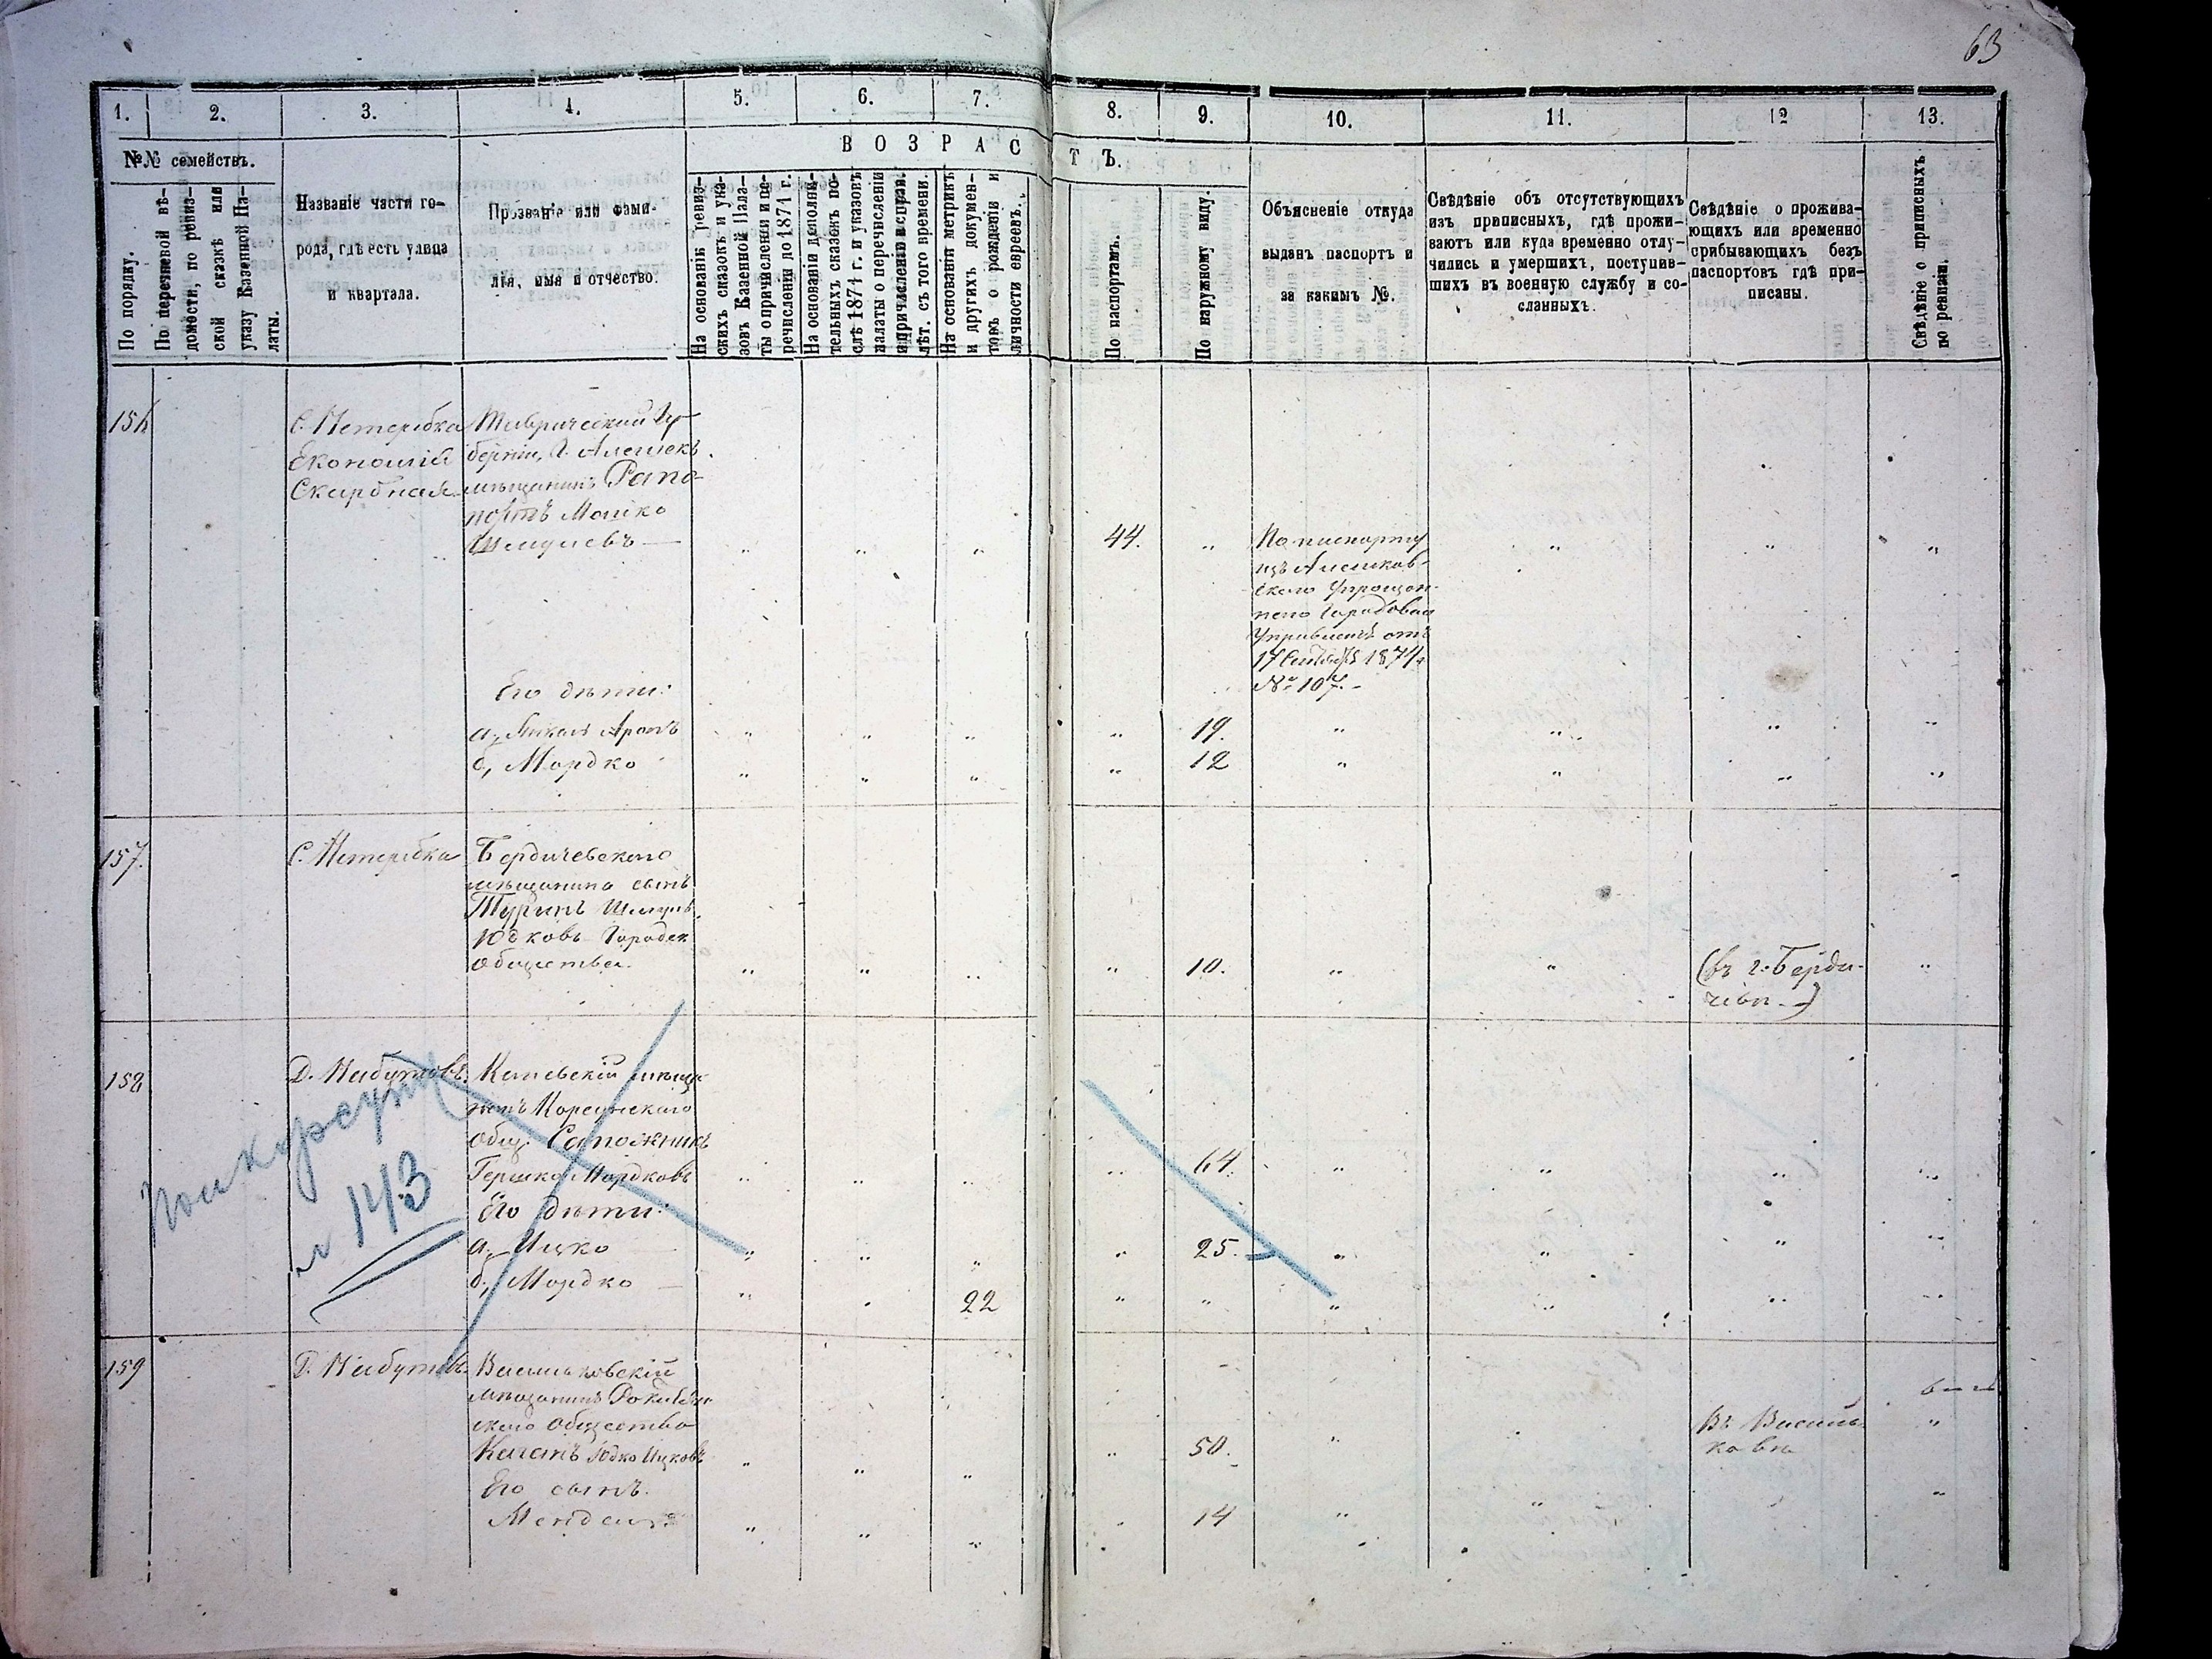 63
1. 2. 3. 4. 5. 6. 7. 8. 9. 10. 11. 12 13.
№№ семействъ.
В О З Р А С Т Ъ.
По порядку.
По перечневой вѣ-
домости, по ревиз-
ской сказкѣ или
указу Казенной Па-
латы.
Названіе части го-
рода, гдѣ есть улица
и квартала.
Прозваніе или фами-
лія, имя и отчество.
На основаніи ревиз-
скихъ сказокъ и ука-
зовъ Казенной Пала-
ты о причисленіи и пе-
речисленіи до 1874 г.
На основаніи дополни-
тельныхъ сказокъ по-
слѣ 1874 г. и указовъ
палаты о перечисленіи
и причисленіи и справ.
лѣт. съ того времени.
На основаніи метрикъ
и другихъ докумен-
товъ о рожденіи и
личности евреевъ.
По паспортамъ.
По наружному виду.
Объясненіе откуда
выданъ паспортъ и
за какимъ №.
Свѣдѣніе объ отсутствующихъ
изъ приписныхъ, гдѣ прожи-
ваютъ или куда временно отлу-
чились и умершихъ, поступив-
шихъ въ военную службу и со-
сланныхъ.
Свѣдѣніе о прожива-
ющихъ или временно
прибывающихъ безъ
паспортовъ гдѣ при-
писаны.
Свѣдѣніе о приписныхъ
по ревизіи.
С. Нетеребка
Экономія
Скарбная
Таврической Гу-
берніи, Г. Алешекъ
мѣщанинъ Рапо-
портъ Мошко
Шмулевъ —
44.
По паспорту
изъ Алешков-
скаго Упрощен-
наго Городоваго
Управленія отъ
1874 г.
№ 107.-
Его дѣти:
а, Аронъ
19.
б, Мордко
12
157.
С. Нетеребка
Бердичевскаго
мѣщанина сынъ
Туринъ Шмуль
Юдковъ Городск
общества.
10.
(въ г. Берди-
чевѣ-)
158
Д. Набутовъ.
Каневскій мѣща-
нинъ Корсунскаго
общ. Сапожникъ
Гершко Мордковъ
64.
Его дѣти:
а, Ицко
25.
б, Мордко —
22
143
159
Д. Набутовъ.
Васильковскій
мѣщанинъ
скаго общества
Каганъ Юдко Ицковъ
50.
Въ Василь-
ковѣ
Его сынъ.
Мендель
14